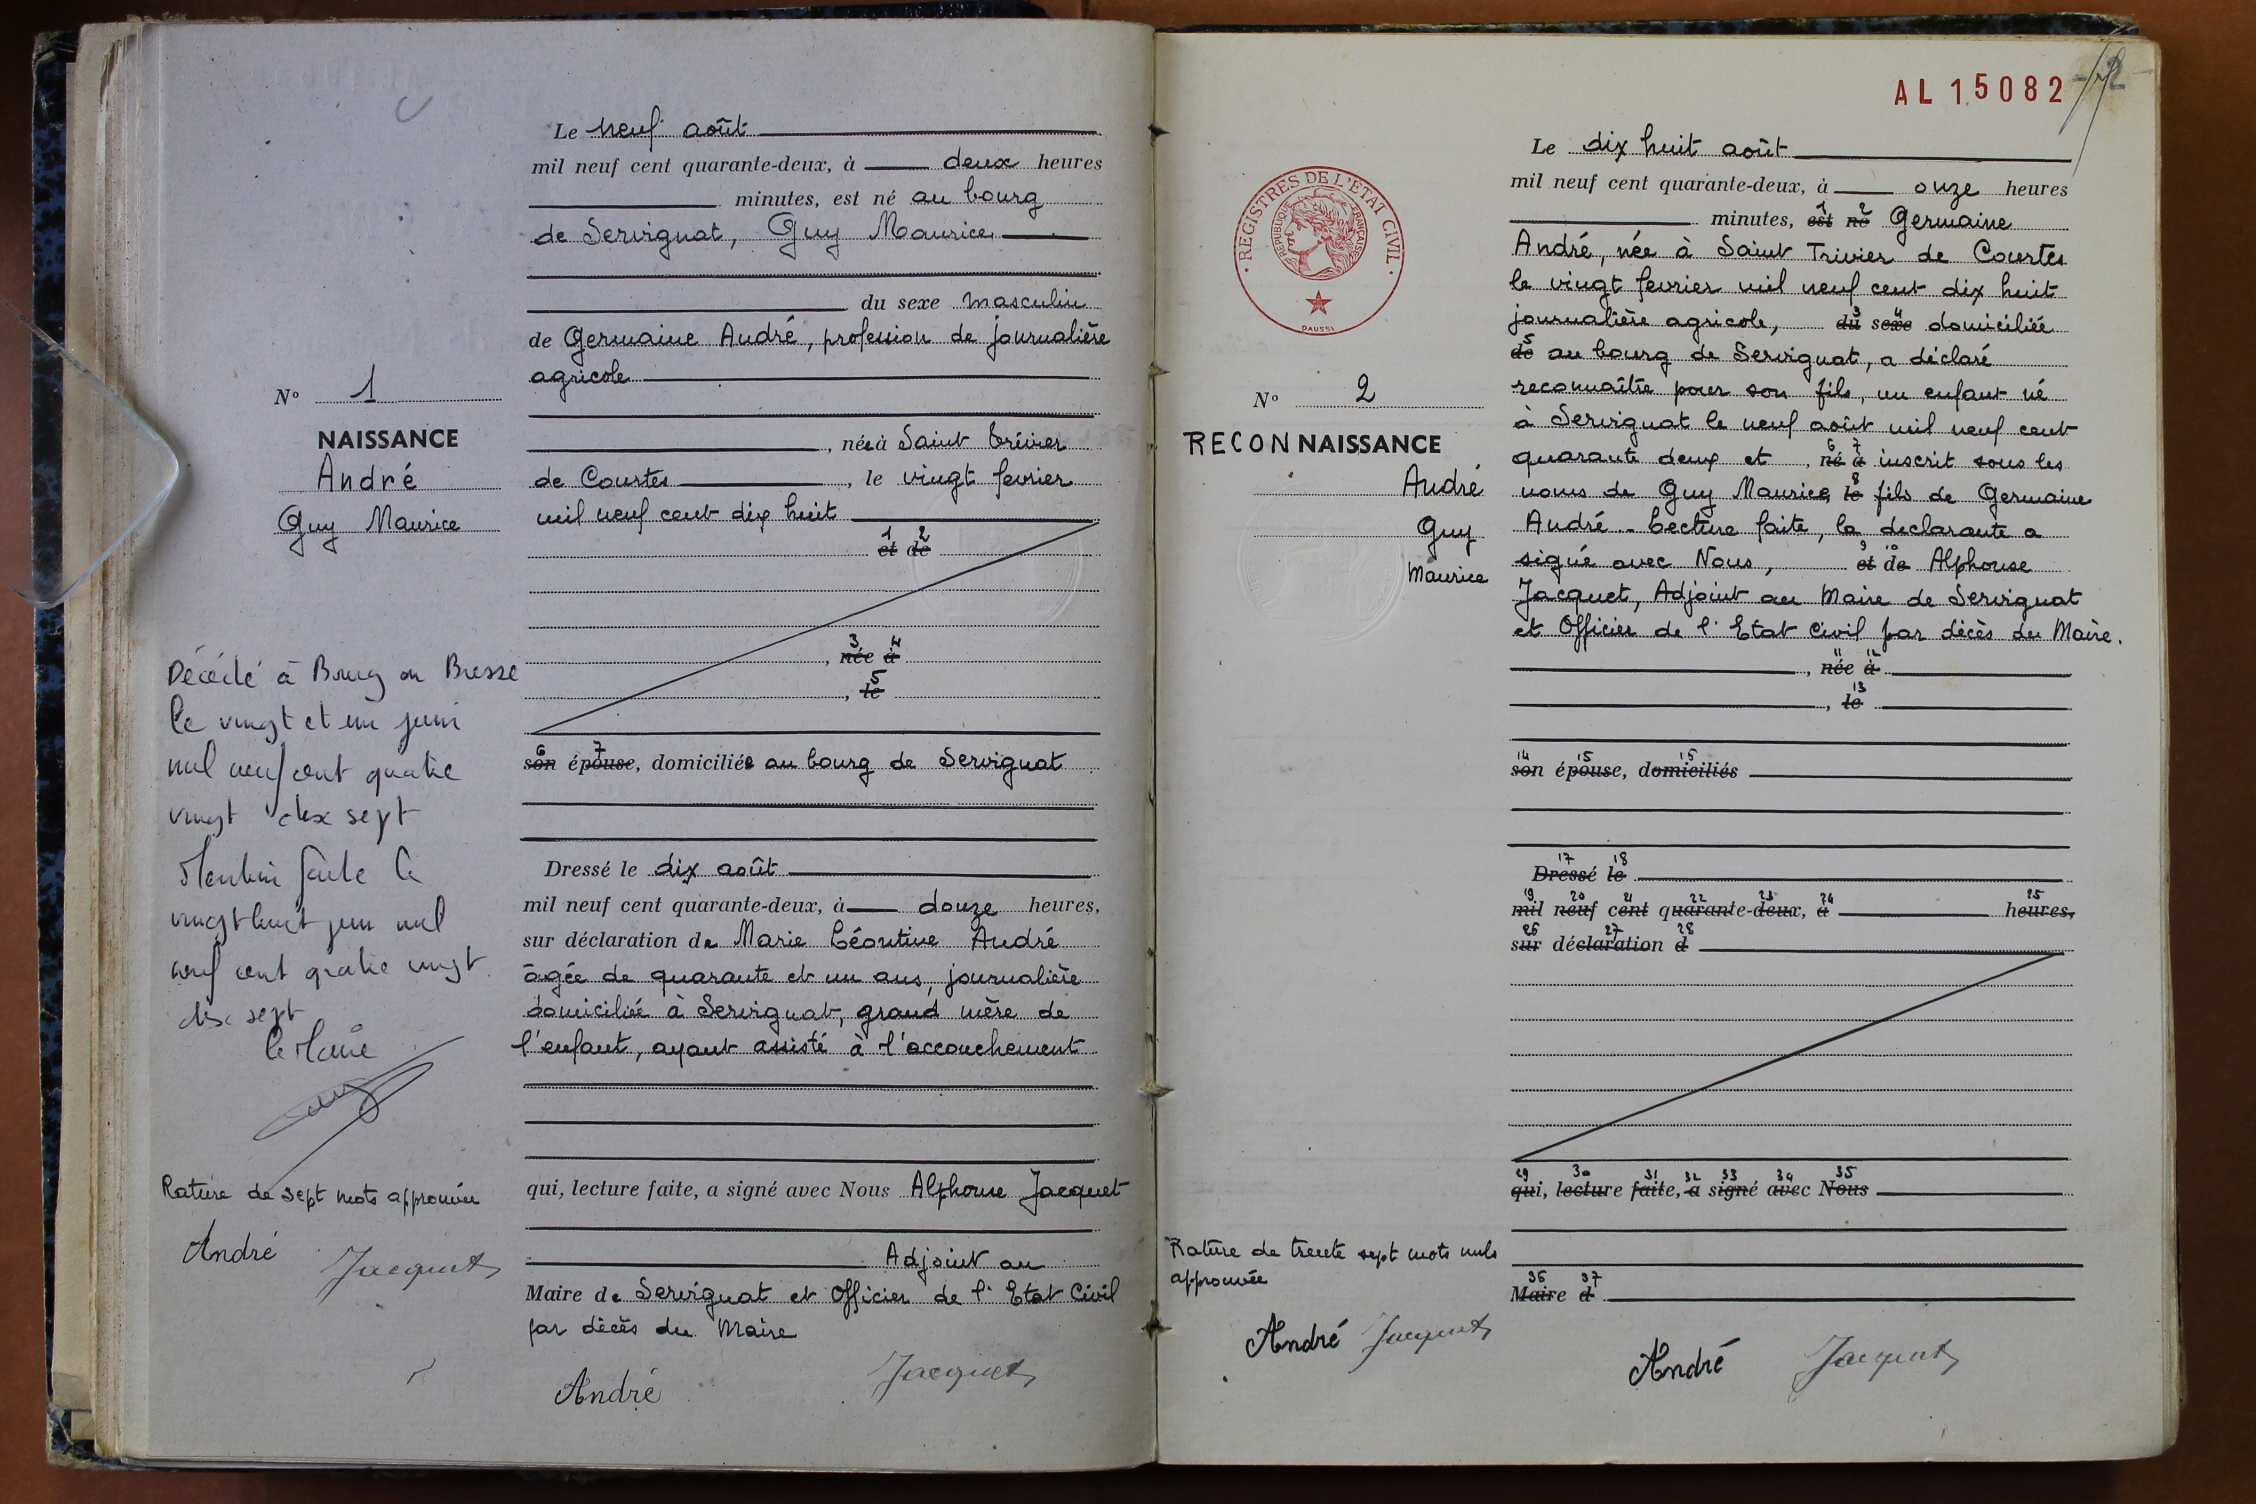 Le neuf août
mil neuf cent quarante-deux, à deux heures
minutes, est né au bourg
de Servignat, Guy Maurice
du sexe masculin
de Germaine André, profession de journalière
agricole
N° 1
NAISSANCE
André
Guy Maurice
, née à Saint Trivier
de Courtes, le vingt fevrier
mil neuf cent dix huit
1 2
et de
3 4
, née à
5
, le
6 7
son épouse, domiciliée au bourg de Servignat
Dressé le dix août
mil neuf cent quarante-deux, à douze heures,
sur déclaration de Marie Léontine André
âgée de quarante et un ans, journalière
domiciliée à Servignat, grand mère de
l'enfant, ayant assisté à l'accouchement
qui, lecture faite, a signé avec Nous Alphonse Jacquet
Adjoint au
Maire de Servignat et Officier de l'Etat Civil
par décès du Maire
André Jacquet
Décédé à Bourg en Bresse
le vingt et un juin
mil neuf cent quatre
vingt dix sept
Mention faite le
vingt huit juin mil
neuf cent quatre vingt
dix sept
le Maire
Rature de sept mots approuvée
André Jacquet
AL 15082
REGISTRES DE L'ÉTAT CIVIL
RÉPUBLIQUE FRANÇAISE
DAUSSI
N° 2
RECONNAISSANCE
André
Guy
Maurice
Le dix huit août
mil neuf cent quarante-deux, à onze heures
1 2
minutes, est né Germaine
André, née à Saint Trivier de Courtes
le vingt fevrier mil neuf cent dix huit
3 4
journalière agricole, du sexe domiciliée
5
de au bourg de Servignat, a déclaré
reconnaître pour son fils, un enfant né
à Servignat le neuf août mil neuf cent
6 7
quarante deux et , né à inscrit sous les
8
noms de Guy Maurice, le fils de Germaine
André - Lecture faite, la declarante a
9 10
signé avec Nous, et de Alphonse
Jacquet, Adjoint au Maire de Servignat
et Officier de l'Etat Civil par décès du Maire.
11 12
, née à
13
, le
14 15 15
son épouse, domiciliés
17 18
Dressé le
19 20 21 22 23 24 25
mil neuf cent quarante-deux, à heures,
26 27 28
sur déclaration d
29 30 31 32 33 34 35
qui, lecture faite, a signé avec Nous
36 37
Maire d
André Jacquet
Rature de trente sept mots nuls
approuvée
André Jacquet